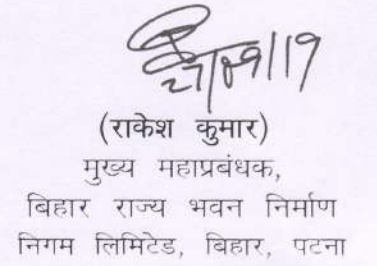 27/09/19
(राकेश कुमार)
मुख्य महाप्रबंधक,
बिहार राज्य भवन निर्माण
निगम लिमिटेड, बिहार, पटना